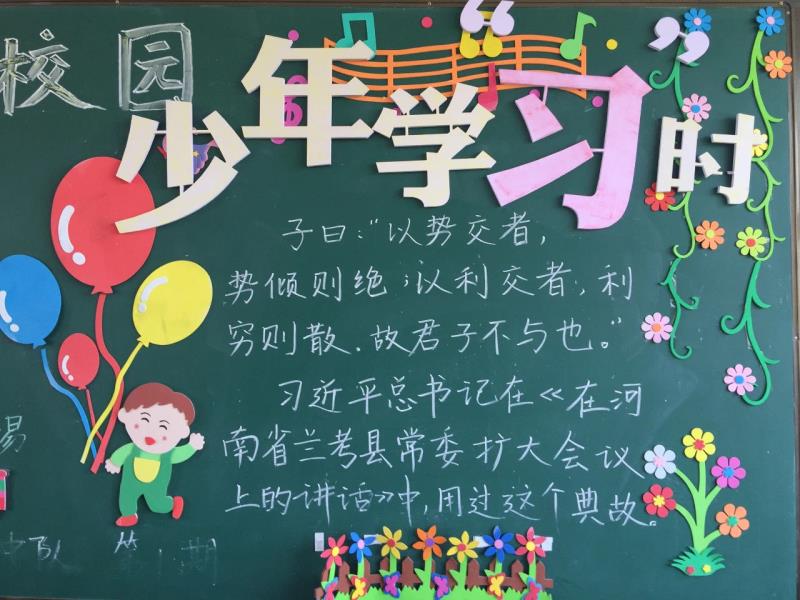 校园
少年“学习”时
子曰：“以势交者，
势倾则绝；以利交者，利
穷则散．故君子不与也。”
习近平总书记在《在河
南省兰考县常委扩大会议
上的讲话》中，用过这个典故。
易
中队 第 期